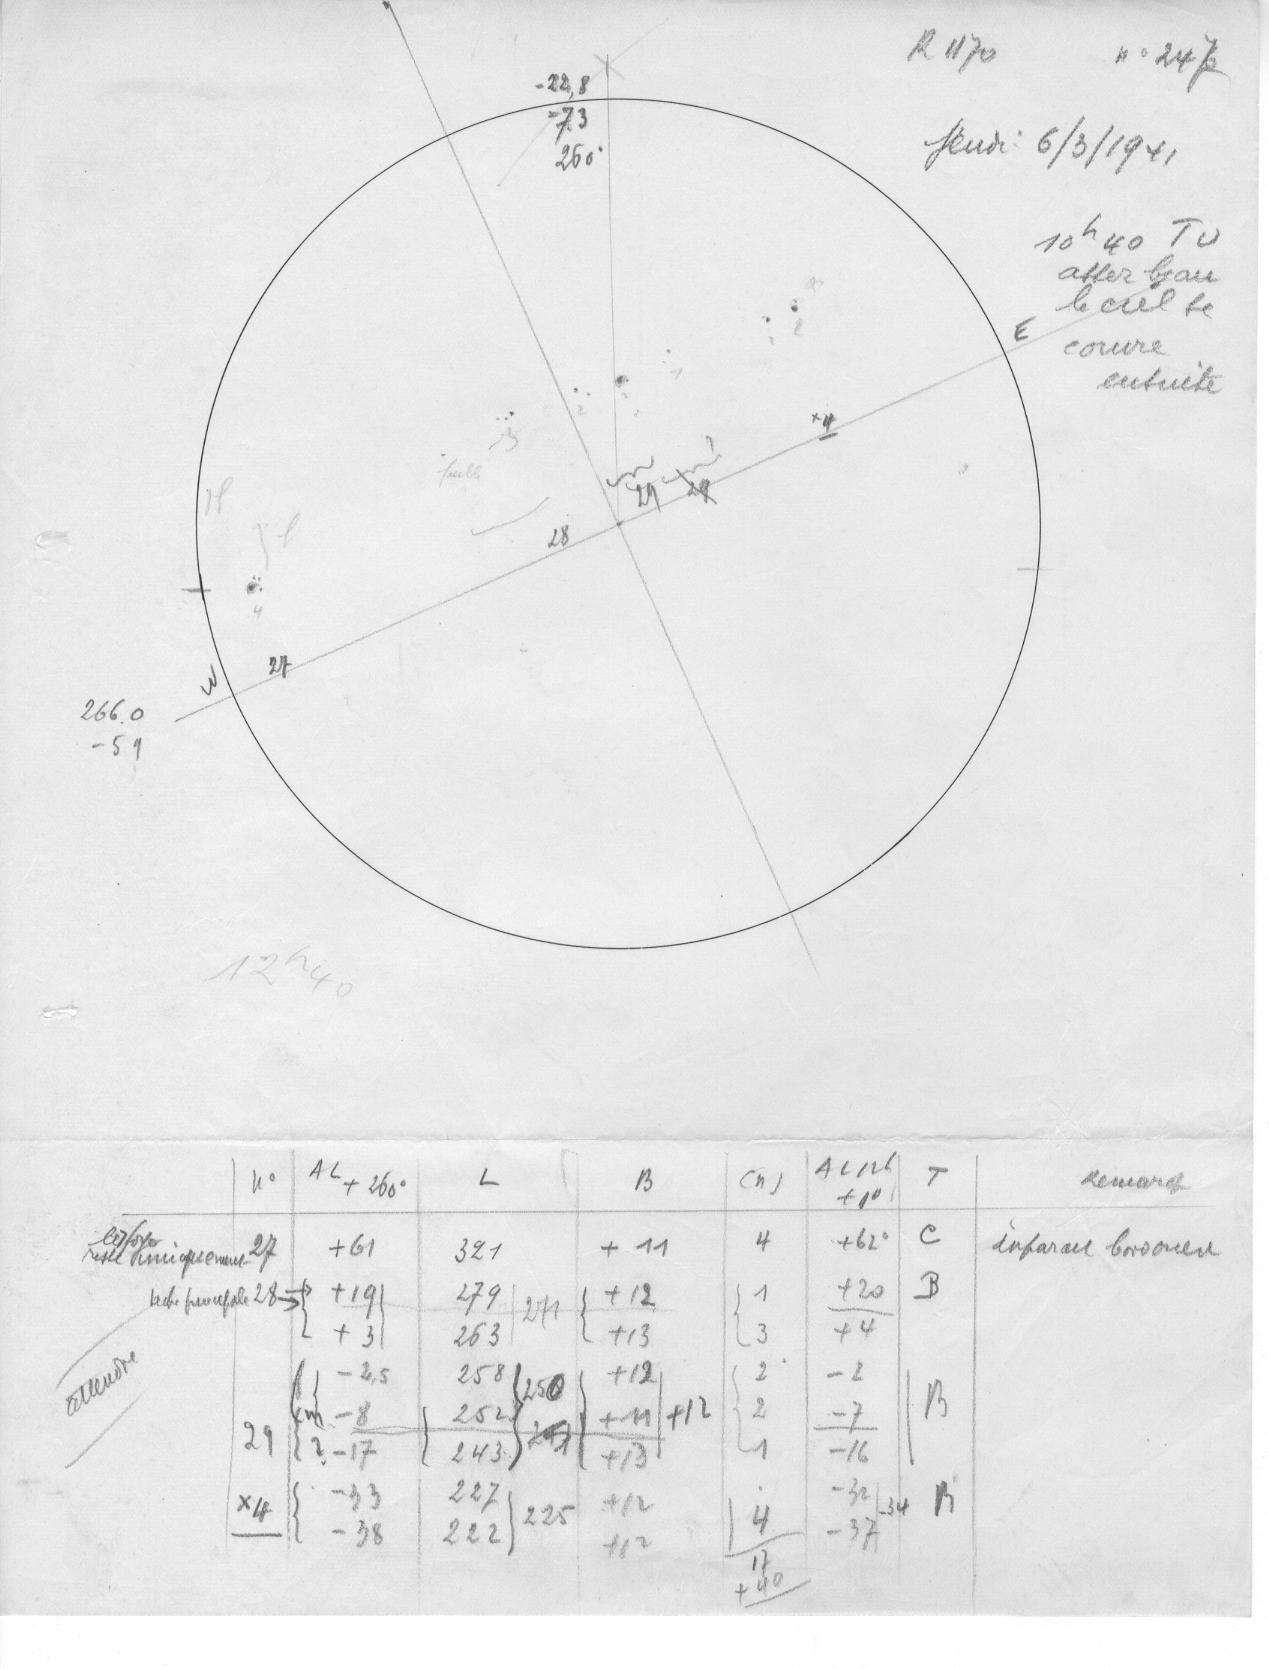 R 1170 n° 247
Jeudi 6/3/1941
-22,8
-7.3
260°
10h 40 TU
assez beau
le ciel se
couvre
ensuite
E
W
x4
29
28
27
1
2
3
4
faible
266.0
-59
12h40
n° AL + 260° L B (n) AL 12h +1° T Remarq
27 +61 321 +11 4 +62° C
tache principale 28 → +19 279 271 +12 1 +20 B
+3 263 +13 3 +4
-2,5 258 250 +12 2 -2
-8 252 +11 +12 2 -7 B
29 ? -17 243 +13 1 -16
attendre
x4 -33 227 225 +12 -32 -34 B
-38 222 +12 4 -37
17
+40